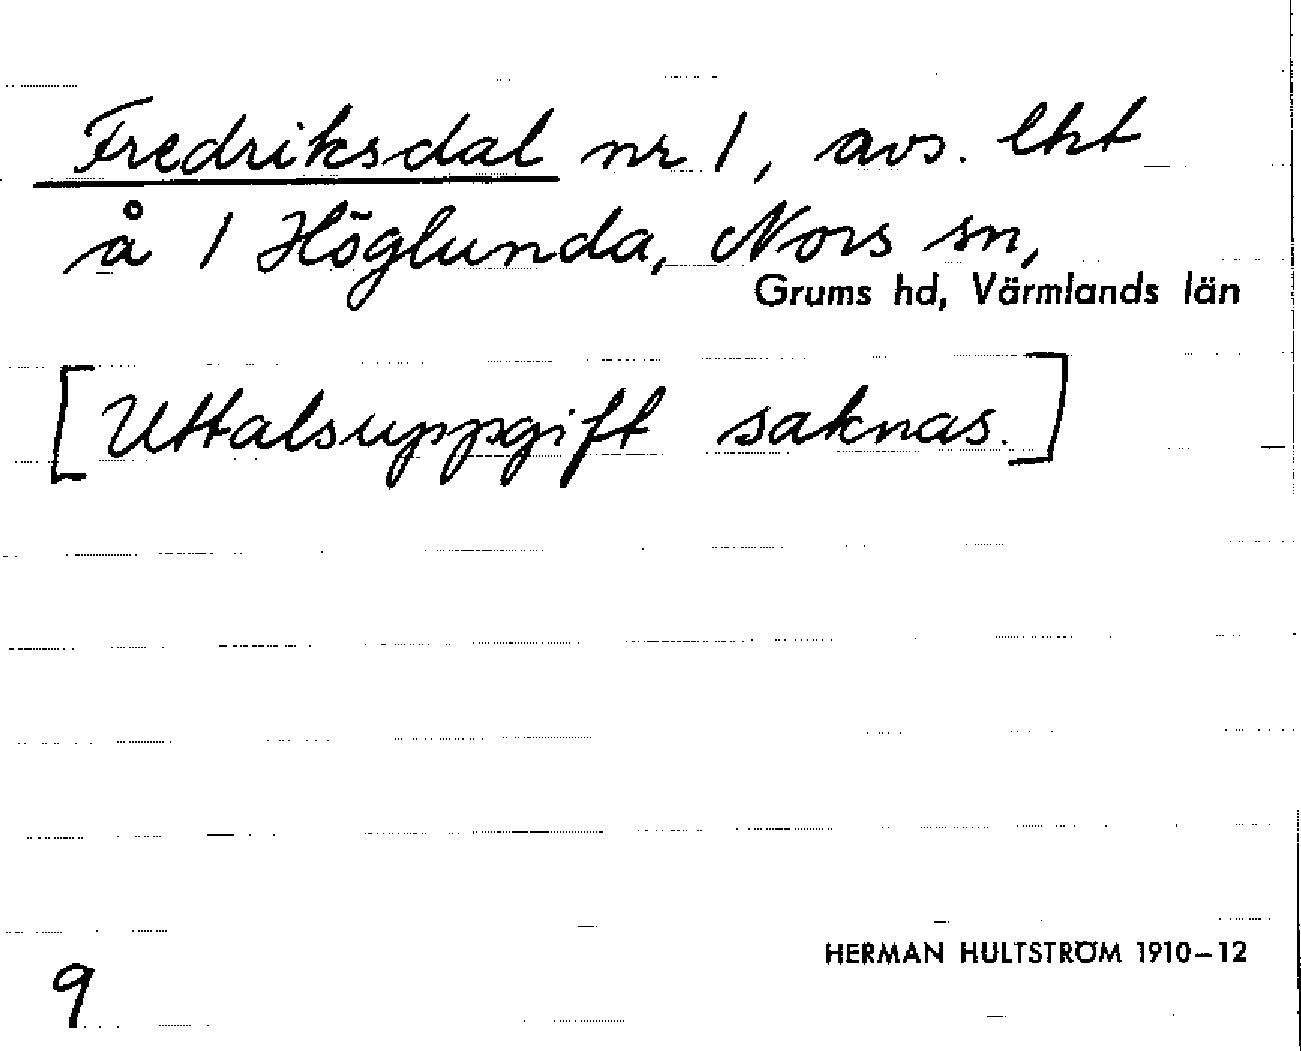 Fredriksdal nr 1, avs. lht
å 1 Höglunda, Nors sn,
Grums hd, Värmlands län
[Uttalsuppgift saknas.]
HERMAN HULTSTRÖM 1910–12
9